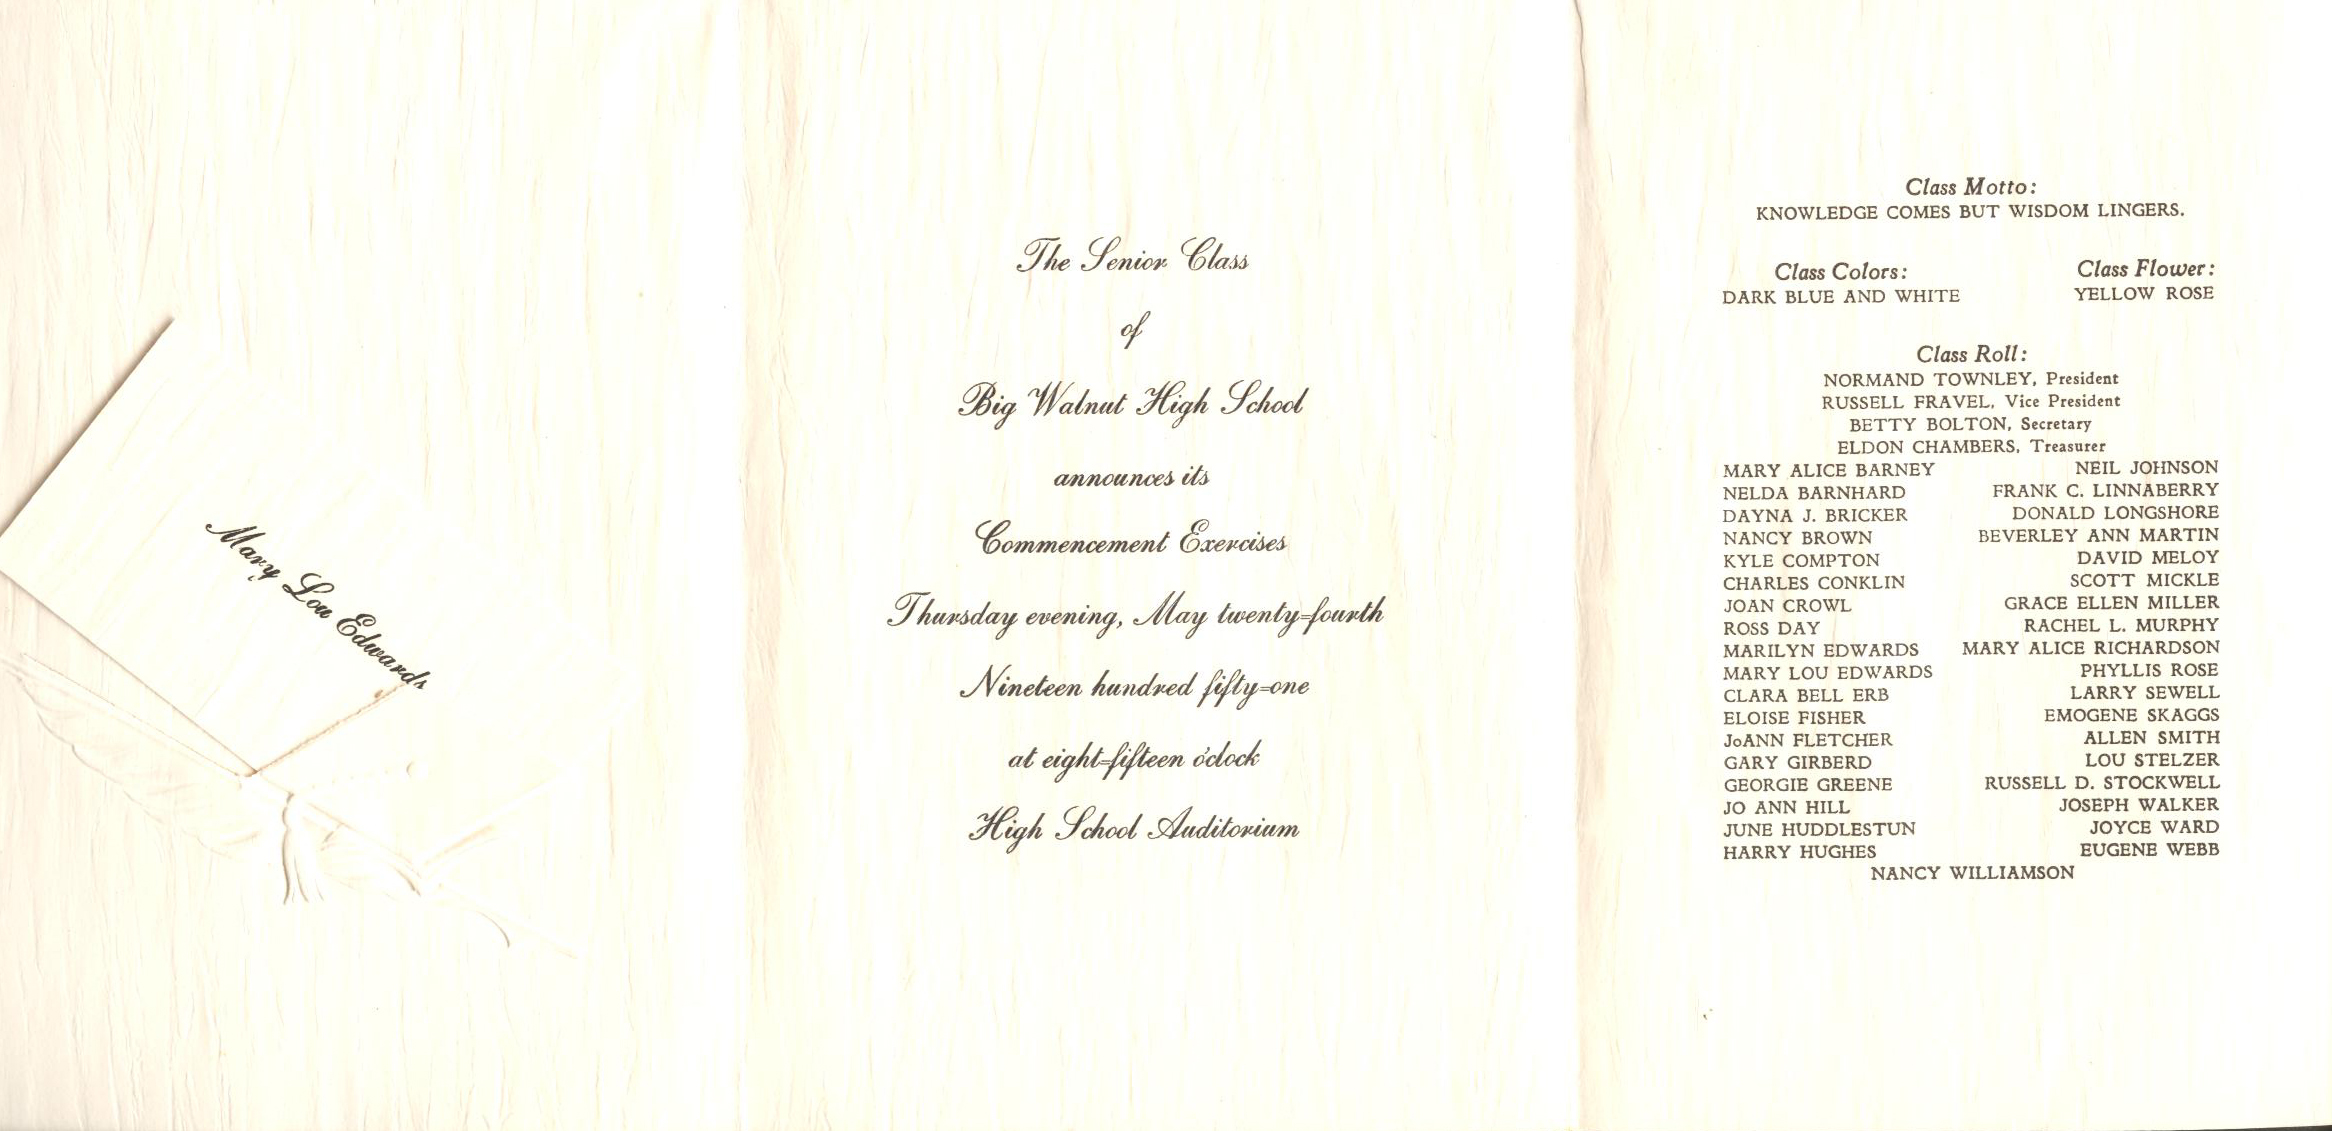 Mary Lou Edwards
The Senior Class
of
Big Walnut High School
announces its
Commencement Exercises
Thursday evening, May twenty-fourth
Nineteen hundred fifty-one
at eight-fifteen o'clock
High School Auditorium
Class Motto:
KNOWLEDGE COMES BUT WISDOM LINGERS.
Class Colors:
DARK BLUE AND WHITE
Class Flower:
YELLOW ROSE
Class Roll:
NORMAND TOWNLEY, President
RUSSELL FRAVEL, Vice President
BETTY BOLTON, Secretary
ELDON CHAMBERS, Treasurer
MARY ALICE BARNEY
NELDA BARNHARD
DAYNA J. BRICKER
NANCY BROWN
KYLE COMPTON
CHARLES CONKLIN
JOAN CROWL
ROSS DAY
MARILYN EDWARDS
MARY LOU EDWARDS
CLARA BELL ERB
ELOISE FISHER
JoANN FLETCHER
GARY GIRBERD
GEORGIE GREENE
JO ANN HILL
JUNE HUDDLESTUN
HARRY HUGHES
NEIL JOHNSON
FRANK C. LINNABERRY
DONALD LONGSHORE
BEVERLEY ANN MARTIN
DAVID MELOY
SCOTT MICKLE
GRACE ELLEN MILLER
RACHEL L. MURPHY
MARY ALICE RICHARDSON
PHYLLIS ROSE
LARRY SEWELL
EMOGENE SKAGGS
ALLEN SMITH
LOU STELZER
RUSSELL D. STOCKWELL
JOSEPH WALKER
JOYCE WARD
EUGENE WEBB
NANCY WILLIAMSON